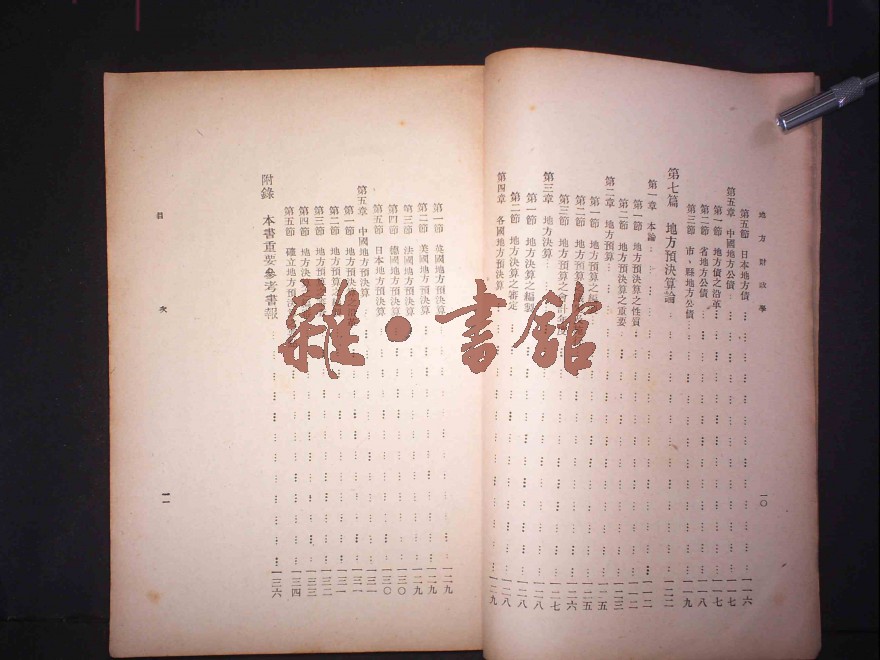 地方財政學
一〇
第五節 日本地方債……一一六
第五章 中國地方公債……一一七
第一節 地方債之沿革……一一七
第二節 省地方公債……一一八
第三節 市,縣地方公債……一一九
第七篇 地方預決算論……一二二
第一章 本論……一二二
第一節 地方預算之性質……一二二
第二節 地方預算之重要……一二三
第二章 地方預算……一二五
第一節 地方預算之……一二五
第二節 地方預算之……一二六
第三節 地方預算之會計年度……一二七
第三章 地方決算……一二八
第一節 地方決算之編製……一二八
第二節 地方決算之審定……一二八
第四章 各國地方預決算……一二九
第一節 英國地方預決算……一二九
第二節 美國地方預決算……一二九
第三節 法國地方預決算……一二九
第四節 德國地方預決算……一三〇
第五節 日本地方預決算……一三〇
第五章 中國地方預決算……一三一
第一節 地方預決算……一三一
第二節 地方預算……一三一
第三節 地方預算……一三二
第四節 地方決算……一三三
第五節 確立地方預決算……一三四
附錄 本書重要參考書報……一三六
目次
一一
雜·書館